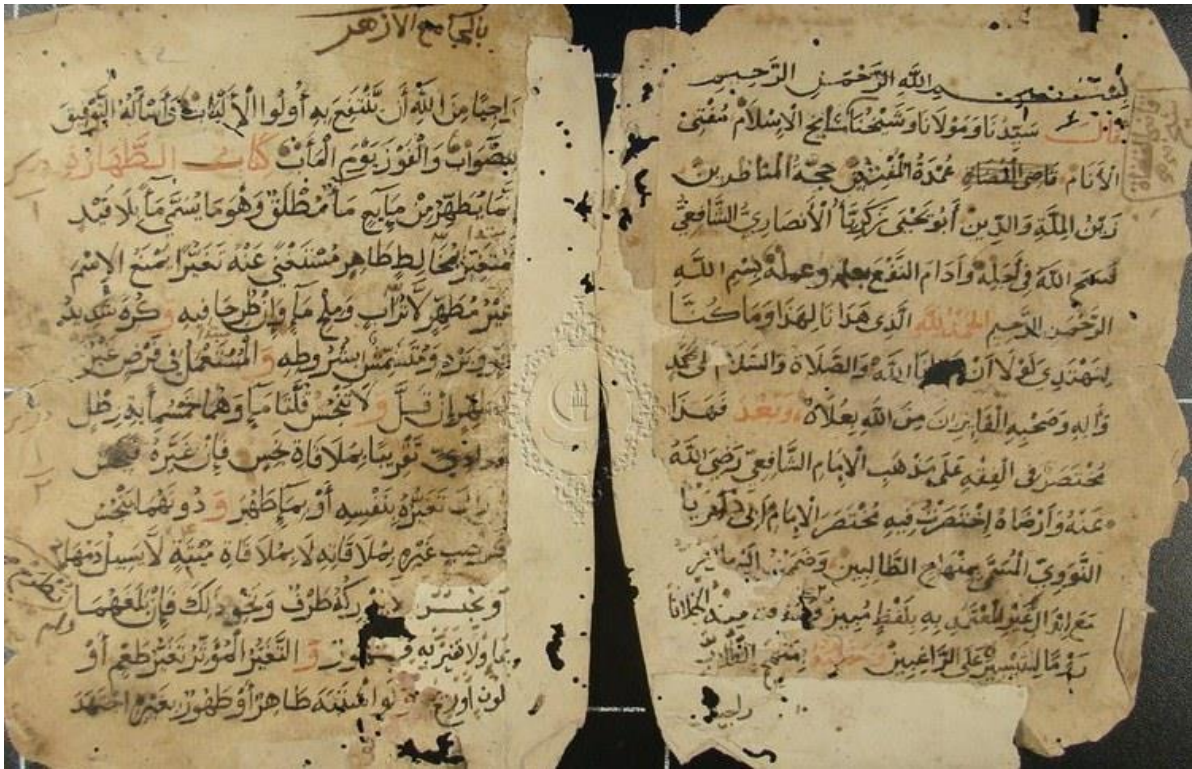 بسم الله الرحمن الرحيم
قال سيدنا ومولانا وشيخنا شايخ الإسلام مفتي
الأنام قاضي القضاة عمدة المفتيين حجة المناظرين
زين الملة والدين أبو يحيى زكريا الأنصاري الشافعي
فسح الله في أجله وأدام النفع بعلمه وعمله بسم الله
الرحمن الرحيم الحمد لله الذي هدانا لهذا وما كنا
لنهتدي لولا أن الله والصلاة والسلام على محمد
وآله وصحبه الفايزين من الله بعلاه وبعد فهذا
مختصر في الفقه على مذهب الإمام الشافعي رضي الله
عنه وأرضاه اختصرت فيه مختصر الإمام أبي زكريا
النووي المسمى بمنهاج الطالبين وضممت إليه ما يسر
مع إبدال غير المعتمد به بلفظ مبين وحذفت منه الخلاف
روما لتيسيره على الراغبين وسميته بمنهج الطلاب
راجيا
بالجامع الأزهر
راجيا من الله أن ينتفع به أولوا الألباب وأسأله التوفيق
للصواب والفوز يوم المآب كتاب الطهارة
إنما يطهر من مايع ماء مطلق وهو ما يسمى ماء بلا قيد
فمتغير بمخالط طاهر مستغنى عنه تغيرا يمنع الإسم
غير مطهر لا تراب وملح ماء وإن طرحا فيه وكره شديد
حر وبرد ومتشمس بشروطه والمستعمل في فرض غير
مطهر إن قل ولا تنجس قلتا ماء وهما خمسماية رطل
بغدادي تقريبا بملاقاة نجس فإن غيره فنجس
فإن زال تغيره بنفسه أو بماء طهر ودونهما ينجس
كرطب غيره بملاقاته لا بملاقاة ميتة لا يسيل دمها
ونجس لا يدركه طرف ونحو ذلك فإن بلغهما
بماء ولا تغير به فطهور والتغير المؤثر تغير طعم أو
لون أو ريح ولو اشتبه طاهر أو طهور بغيره اجتهد